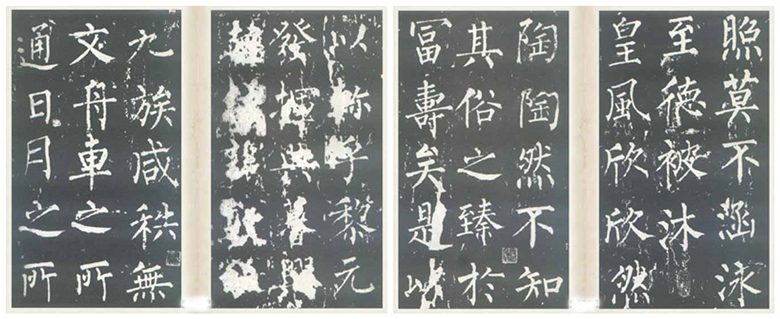 以 乎黎元
發揮典
九族咸秩無
文舟車之所
通日月之所
照莫不涵泳
至德被沐
皇風欣欣然
陶陶然不知
其俗之臻於
冨壽矣是以